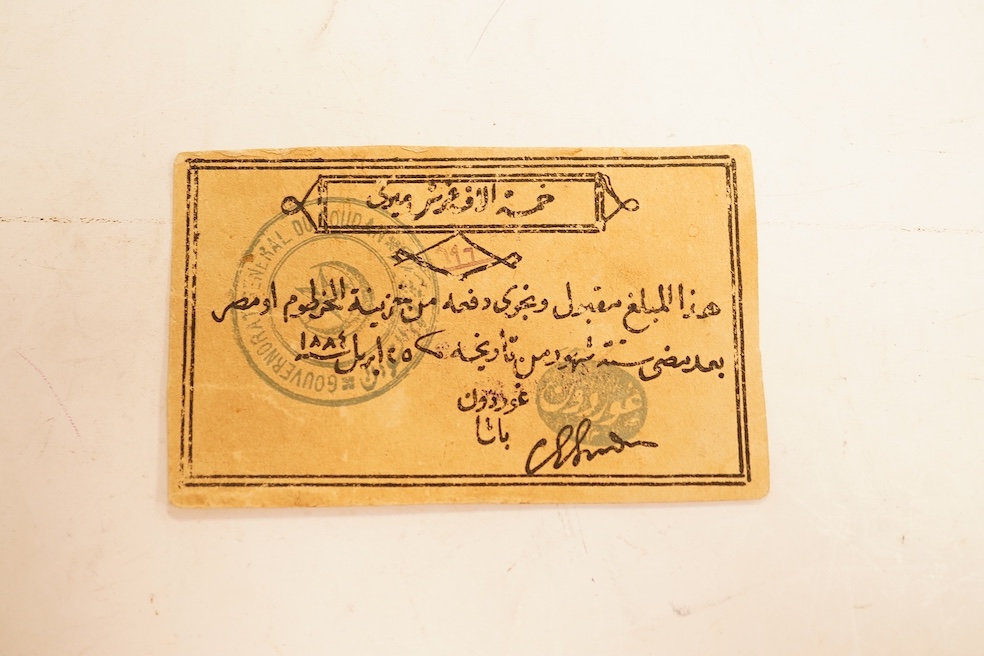 خمسة الاف قرش ميرى
هذا المبلغ مقبول ويجرى دفعه من خزينة الخرطوم او مصر
بعد مضى ستة شهور من تاريخه ٢٥ ابريل ١٨٨٤
غوردون
باشا
غوردون
GOUVERNORAT GENERAL DU SOUDAN